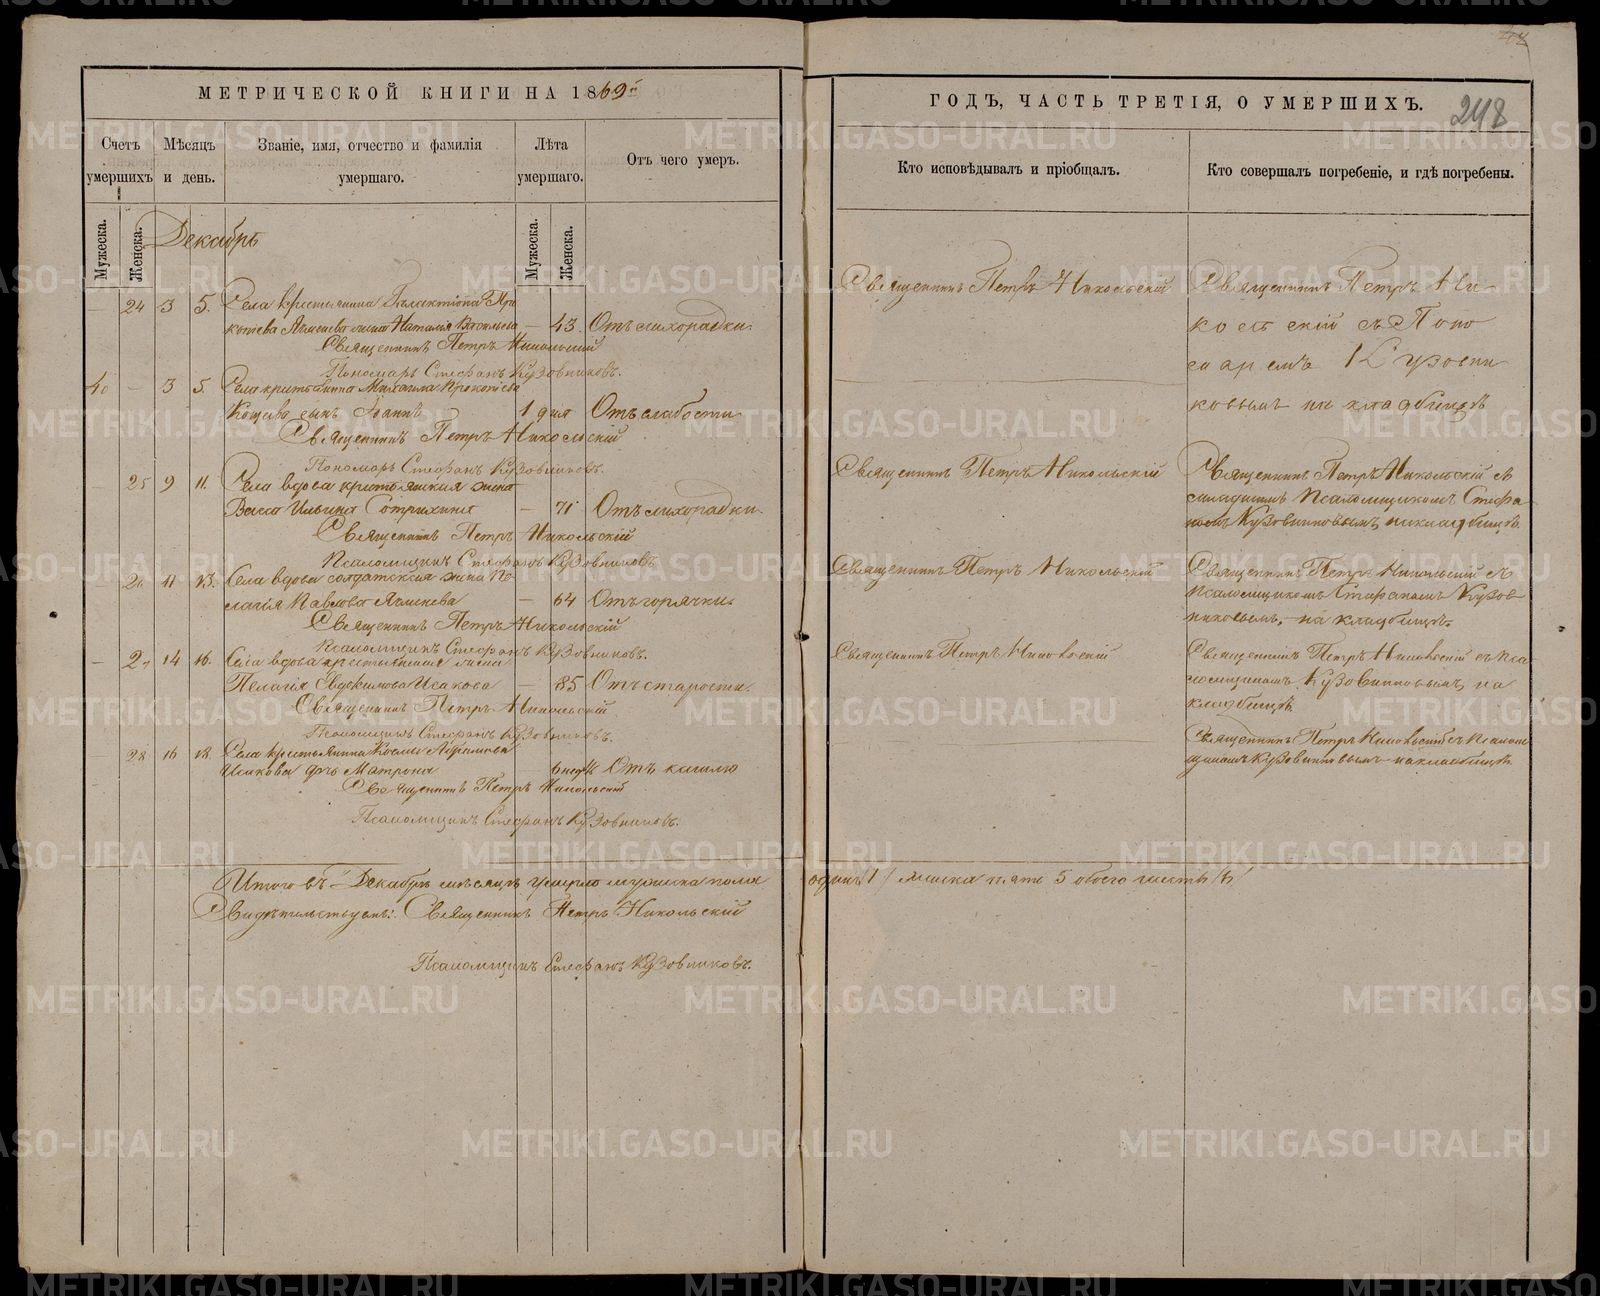 МЕТРИЧЕСКОЙ КНИГИ НА 1869й
Счетъ умершихъ
Мѣсяцъ и день.
Званіе, имя, отчество и фамилія умершаго.
Лѣта умершаго.
Отъ чего умеръ.
Мужеска.
Женска.
Мужеска.
Женска.
Декабрь
— 24 3 5. Села крестьянина Галактіона Про
копіева жена Наталія Васильева — 43. Отъ лихорадки.
Священникъ Петръ Никольскій
Пономарь Стефанъ Кузовниковъ.
40 — 3 5. Села крестьянина Михаила Прокопіева
сынъ Іоаннъ 1 дня Отъ слабости
Священникъ Петръ Никольскій
Пономарь Стефанъ Кузовниковъ.
— 25 9 11. Села вдова крестьянская жена
Васса Ильина — 71 Отъ лихорадки.
Священникъ Петръ Никольскій
Псаломщикъ Стефанъ Кузовниковъ
— 26 11 13. Села вдова солдатская жена Пе
лагія Павлова — 64 Отъ горячки.
Священникъ Петръ Никольскій
Псаломщикъ Стефанъ Кузовниковъ.
— 27 14 16. Села вдова крестьянская жена
Пелагія Евдокимова Исакова — 85 Отъ старости.
Священникъ Петръ Никольскій
Псаломщикъ Стефанъ Кузовниковъ.
28 16 18. Села крестьянина Космы
Исакова дочь Матрона 6 нед. Отъ кашлю
Священникъ Петръ Никольскій
Псаломщикъ Стефанъ Кузовниковъ.
Итого въ Декабрѣ мѣсяцѣ умерло мужеска пола
Свидѣтельствуемъ: Священникъ Петръ Никольскій
Псаломщикъ Стефанъ Кузовниковъ.
248
ГОДЪ, ЧАСТЬ ТРЕТІЯ, О УМЕРШИХЪ.
Кто исповѣдывалъ и пріобщалъ.
Кто совершалъ погребеніе, и гдѣ погребены.
Священникъ Петръ Никольскій
Священникъ Петръ Ни-
кольскій съ Поно
маремъ Кузовни
ковымъ на кладбищѣ
Священникъ Петръ Никольскій
Священникъ Петръ Никольскій съ
младшимъ Псаломщикомъ Стефа
номъ Кузовниковымъ, на кладбищѣ.
Священникъ Петръ Никольскій
Священникъ Петръ Никольскій съ
Псаломщикомъ Стефаномъ Кузов
никовымъ, на кладбищѣ.
Священникъ Петръ Никольскій
Священникъ Петръ Никольскій съ Пса
ломщикомъ Кузовниковымъ, на
кладбищѣ
Священникъ Петръ Никольскій съ Псалом
щикомъ Кузовниковымъ на кладбищѣ.
одинъ /1/ женска пять 5 обоего шесть /6/
METRIKI.GASO-URAL.RU